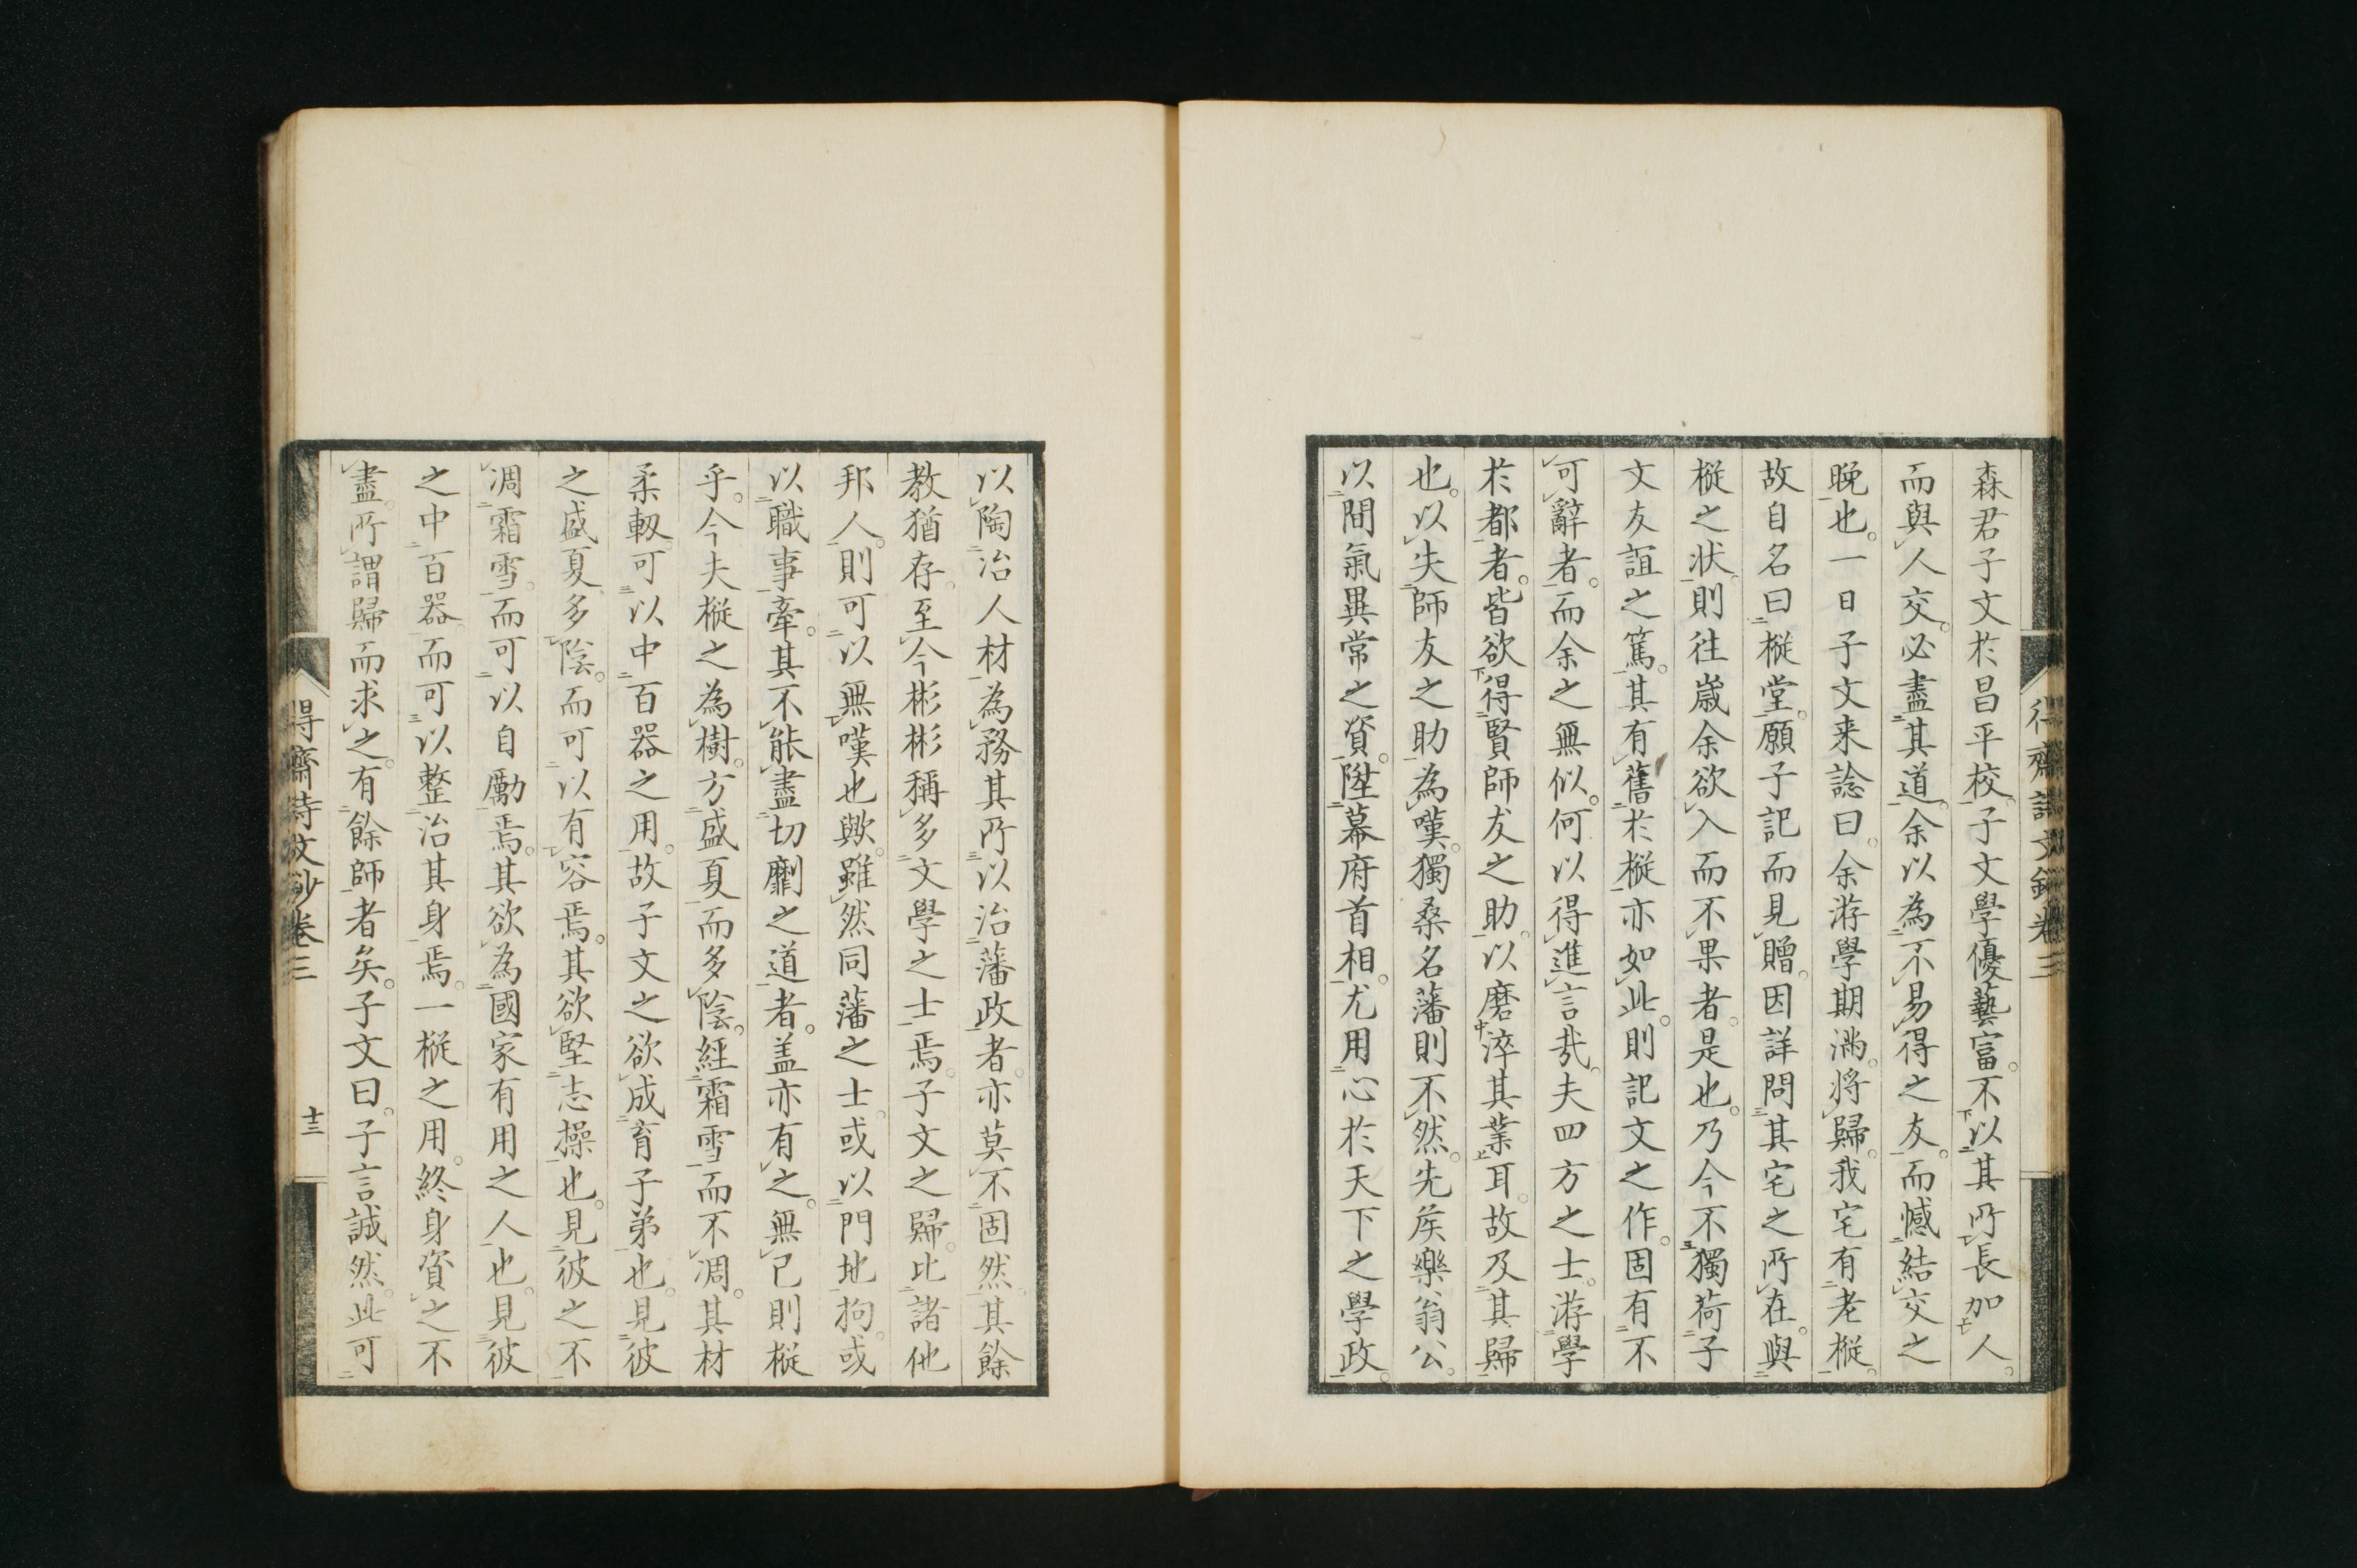 森君子文於昌平校子文學優藝富。不以其所長加人。
而與人交。必盡其道。余以為不易得之友。而憾結交之
晩也。一日子文来諗曰。余游學期滿。将歸。我宅有老樅。
故自名曰樅堂。願子記而見贈。因詳問其宅之所在。與
樅之状。則往歳余欲入而不果者是也。乃今不獨荷子
文友誼之篤。其有舊於樅亦如此。則記文之作。固有不
可辭者。而余之無似。何以得進言哉。夫四方之士。游學
於都者。皆欲得賢師友之助。以磨淬其業耳。故及其歸
也。以失師友之助為嘆。獨桑名藩則不然。先矦樂翁公。
以間氣異常之資。陞幕府首相。尤用心於天下之學政。
以陶冶人材為務其所以治藩政者。亦莫不固然。其餘
教猶存。至今彬彬稱多文學之士焉。子文之歸。比諸他
邦人。則可以無嘆也歟。雖然同藩之士。或以門地拘。或
以職事牽。其不能盡切劘之道者。盖亦有之。無已則樅
乎。今夫樅之為樹。方盛夏而多陰。經霜雪而不凋。其材
柔軔可以中百器之用。故子文之欲成育子弟也。見彼
之盛夏多陰。而可以有容焉。其欲堅志操也。見彼之不
凋霜雪。而可以自勵焉。其欲為國家有用之人也。見彼
之中百器。而可以整治其身焉。一樅之用。終身資之不
盡。所謂歸而求之。有餘師者矣。子文曰。子言誠然。此可
得齋詩文鈔卷三
十三